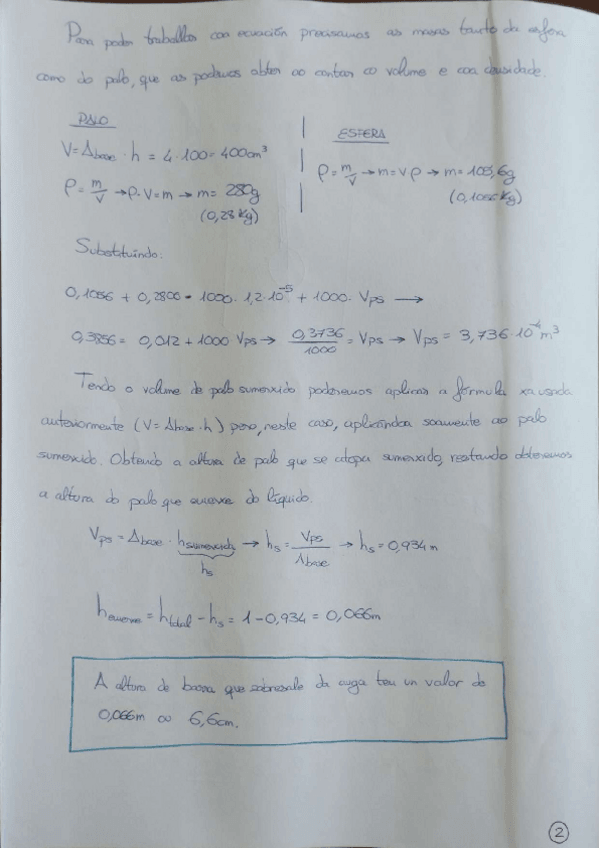 Para poder traballar coa ecuación precisamos as masas tanto da esfera
como do palo, que as podemos obter ao contar co volume e coa densidade.
PALO
V = Abase · h = 4 · 100 = 400 cm³
ρ = m/V → ρ · V = m → m = 280g
(0,28 Kg)
ESFERA
ρ = m/V → m = V ρ → m = 105,6g
(0,1056 Kg)
Substituíndo:
0,1056 + 0,2800 = 1000 · 1,2 · 10⁻⁵ + 1000 · Vps →
0,3856 = 0,012 + 1000 Vps → 0,3736/1000 = Vps → Vps = 3,736 · 10⁻⁴ m³
Tendo o volume de palo sumerxido poderemos aplicar a fórmula xa usada
anteriormente (V = Abase · h) pero, neste caso, aplicándoa soamente ao palo
sumerxido. Obtendo a altura de palo que se atopa sumerxido, restando obteremos
a altura do palo que emerxe do líquido.
Vps = Abase · hsumerxido → hs = Vps/Abase → hs = 0,934 m
hs
hemerxe = htotal - hs = 1 - 0,934 = 0,066m
A altura de barra que sobresale da auga ten un valor de
0,066m ou 6,6cm.
2